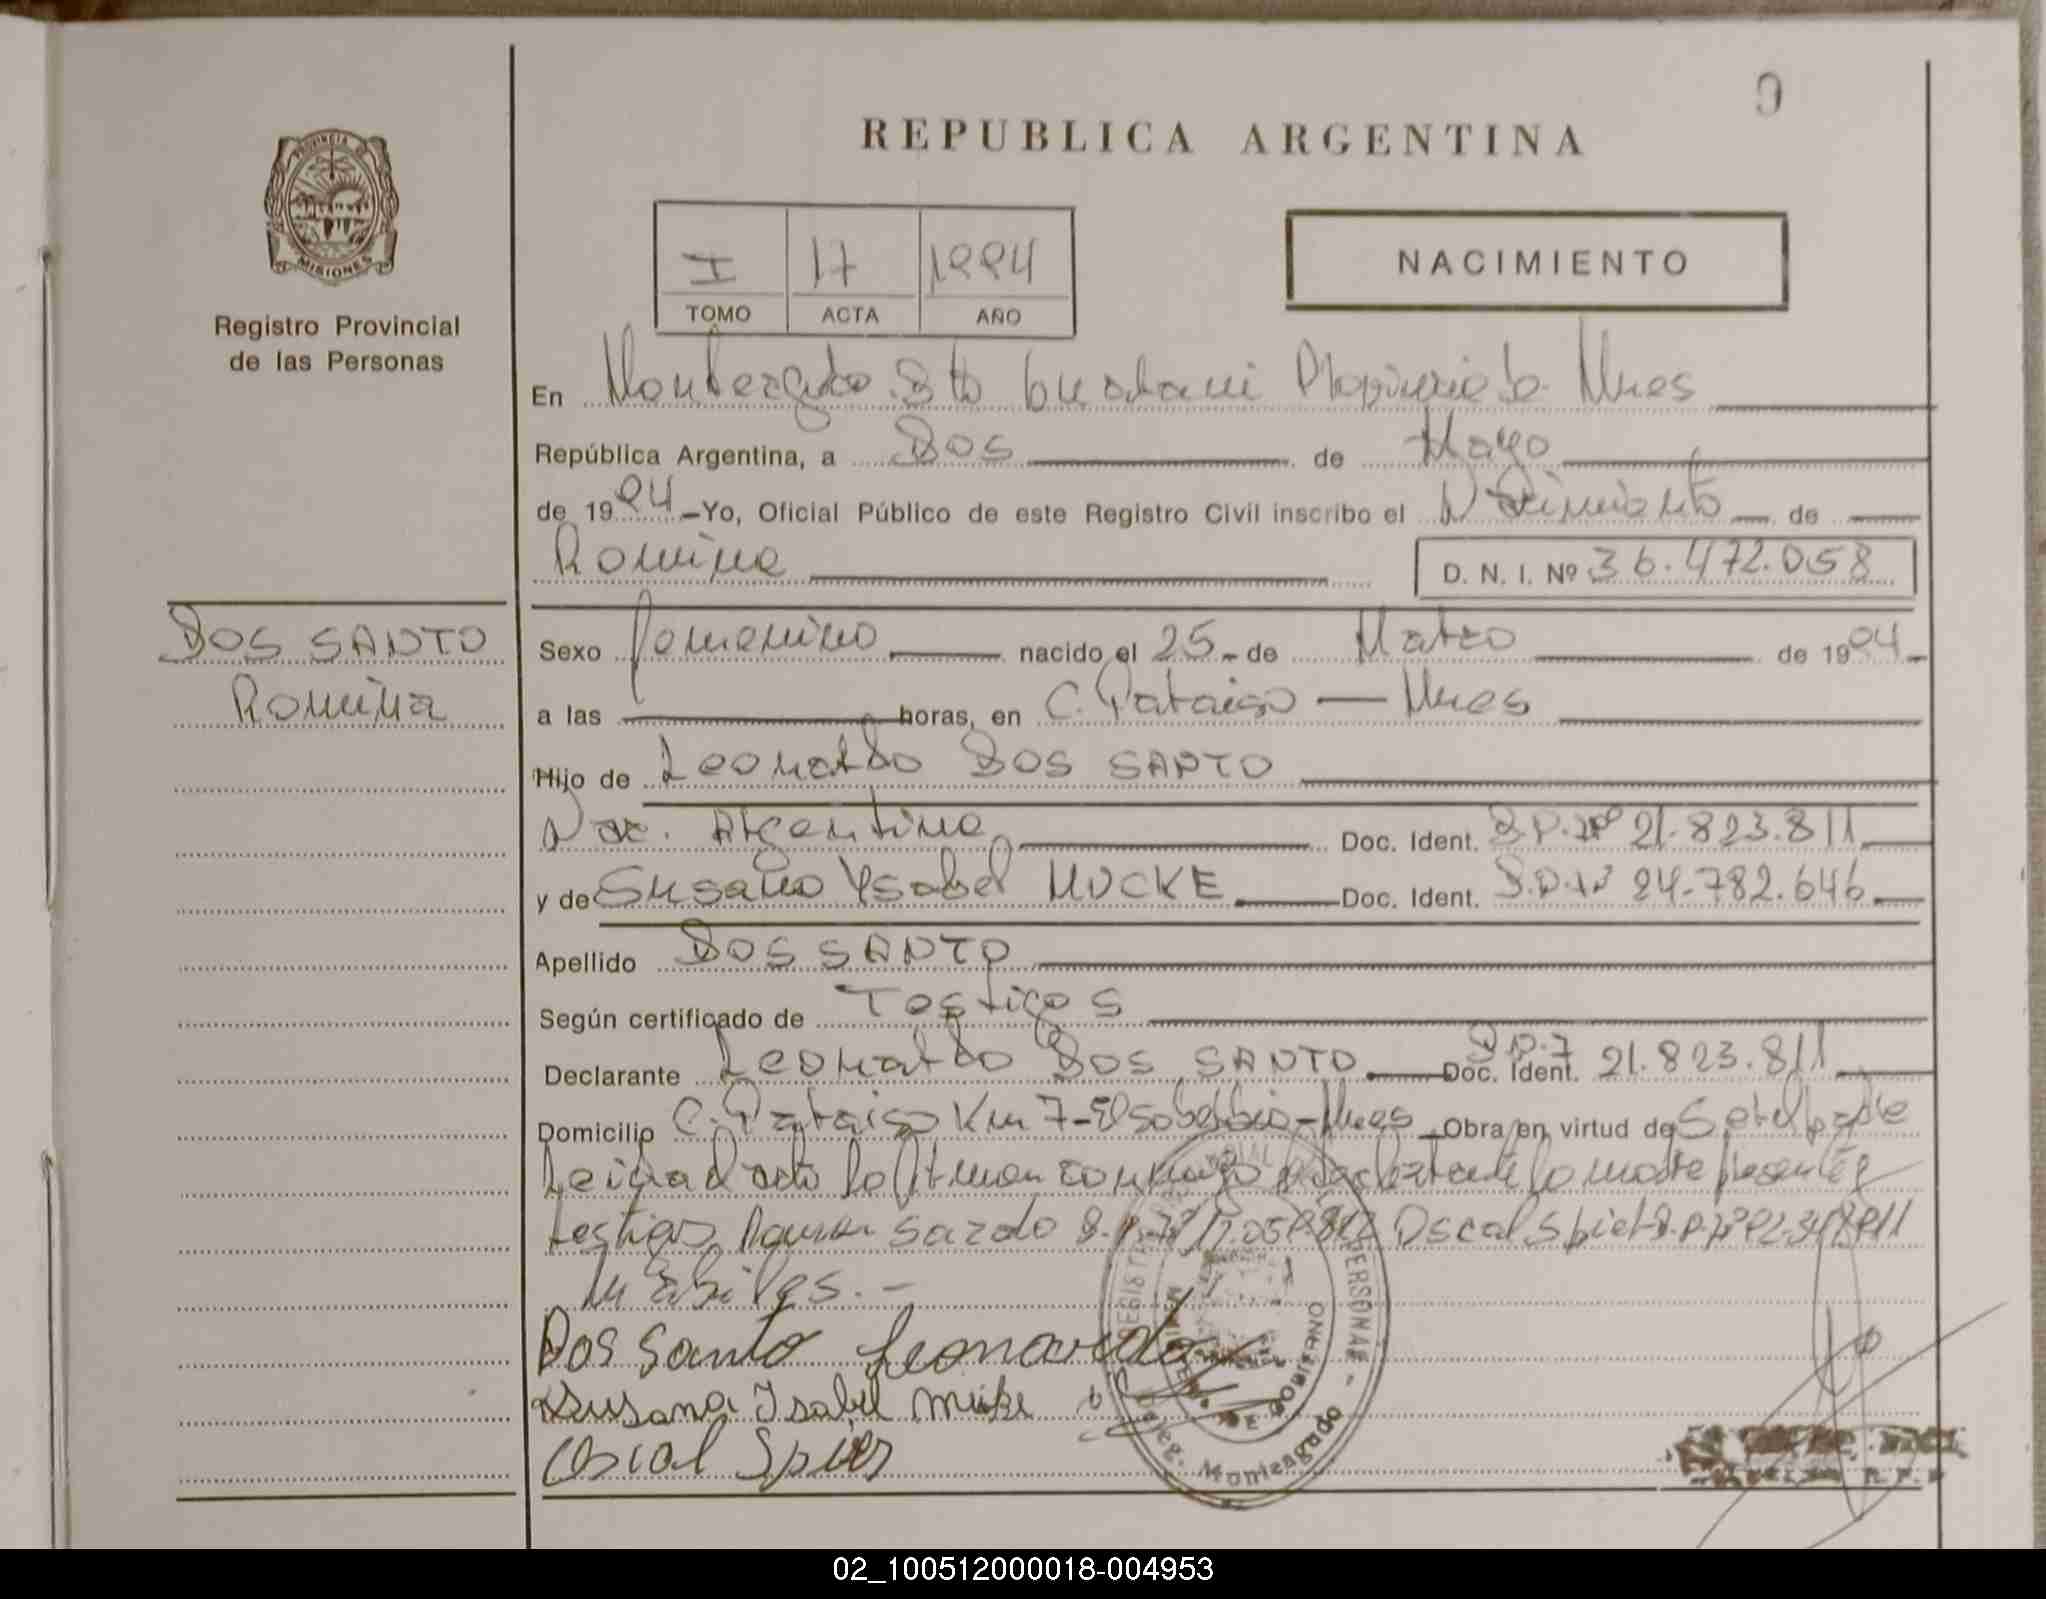 REPUBLICA ARGENTINA
PROVINCIA DE
MISIONES
Registro Provincial
de las Personas
I 17 1994
TOMO ACTA AÑO
NACIMIENTO
En Monteagudo Dto Guarani Provincia de Mnes
República Argentina, a Dos de Mayo
de 1994 - Yo, Oficial Público de este Registro Civil inscribo el Nacimiento de
Romina
D. N. I. Nº 36.472.058
DOS SANTO
Romina
Sexo Femenino nacido el 25 - de Marzo de 1994
a las horas, en C. Paraiso — Mnes
Hijo de Leonardo DOS SANTO
Nac. Argentina Doc. Ident. D.N.Nº 21.823.811
y de Susana Ysabel MUCKE Doc. Ident. D.N.Nº 24.782.646
Apellido DOS SANTO
Según certificado de Testigos
Declarante Leonardo DOS SANTO Doc. Ident. 21.823.811
Domicilio C. Paraiso Km 7 - El Soberbio - Mnes Obra en virtud de
Leida el acta la firman conmigo el declarante la madre
testigos Sazdo Oscar Spier
Dos Santo Leonardo
Susana Isabel Müke
Oscar Spier
REGISTRO PERSONAS -
MINISTERIO DE GOBIERNO
Deleg. Monteagudo
02_100512000018-004953